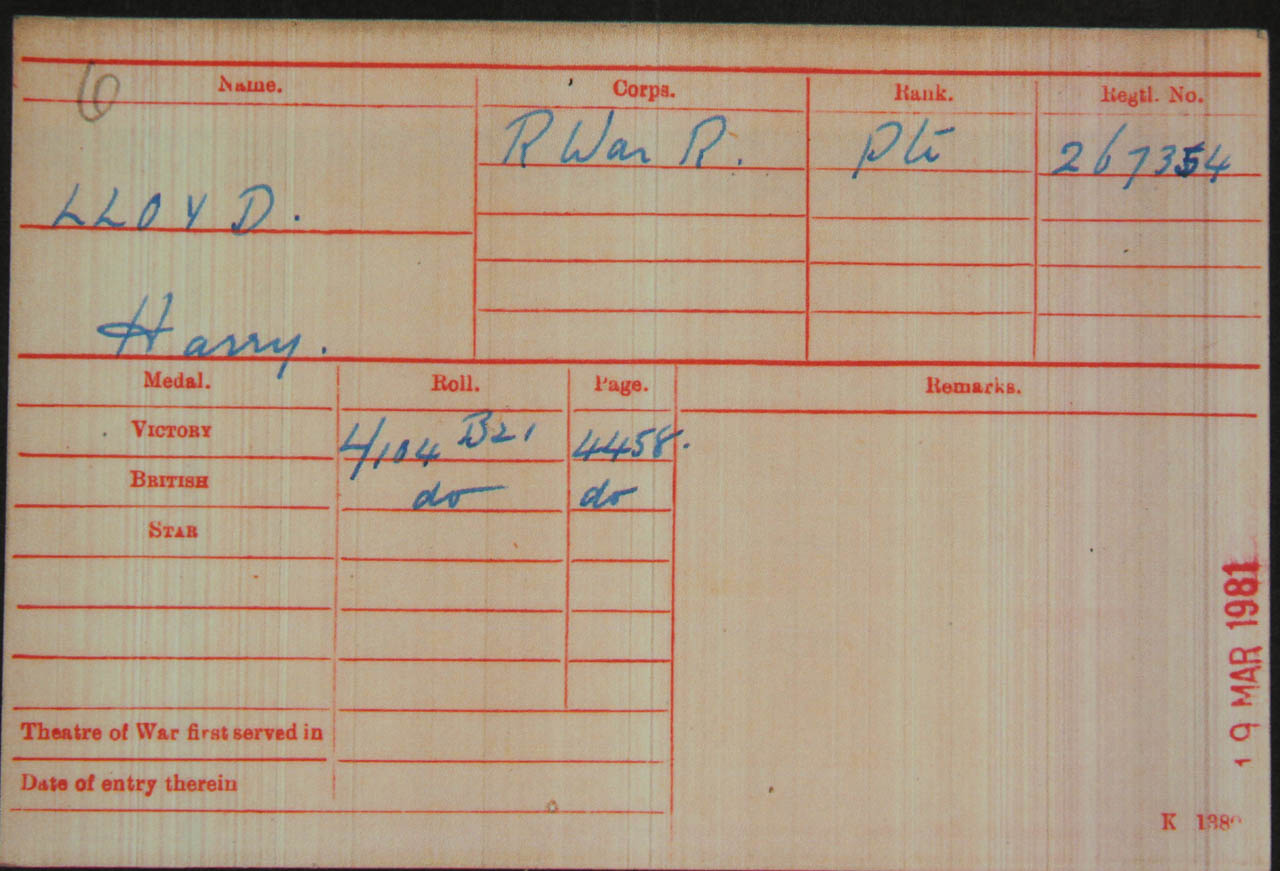 6
Name. Corps. Rank. Regtl. No.
R War R. Pte 267354
LLOYD.
Harry.
Medal. Roll. Page. Remarks.
VICTORY L/104 B21 4458.
BRITISH do do
STAR
Theatre of War first served in
Date of entry therein
19 MAR 1981
K 1380